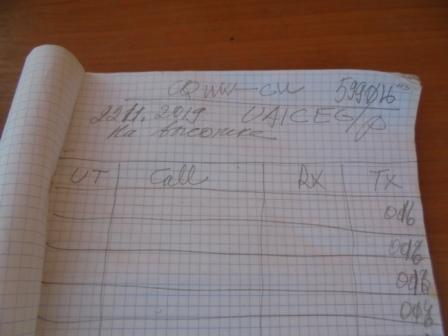 CQ WW-CW 599016
22.11.2019 UA1CEG/p
На высотке
UT Call RX TX
016
016
016
016